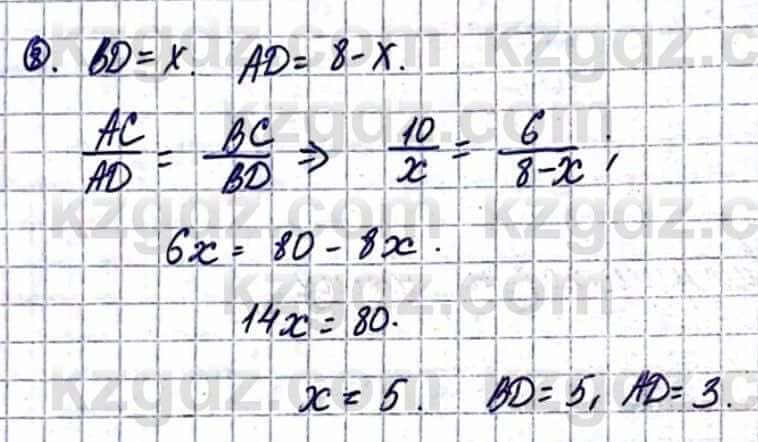 ③. BD = x. AD = 8 - x.
AC/AD = BC/BD => 10/x = 6/(8-x);
6x = 80 - 8x.
14x = 80.
x = 5. BD = 5, AD = 3.
kzgdz.com
kzgdz.com
kzgdz.com
kzgdz.com
kzgdz.com